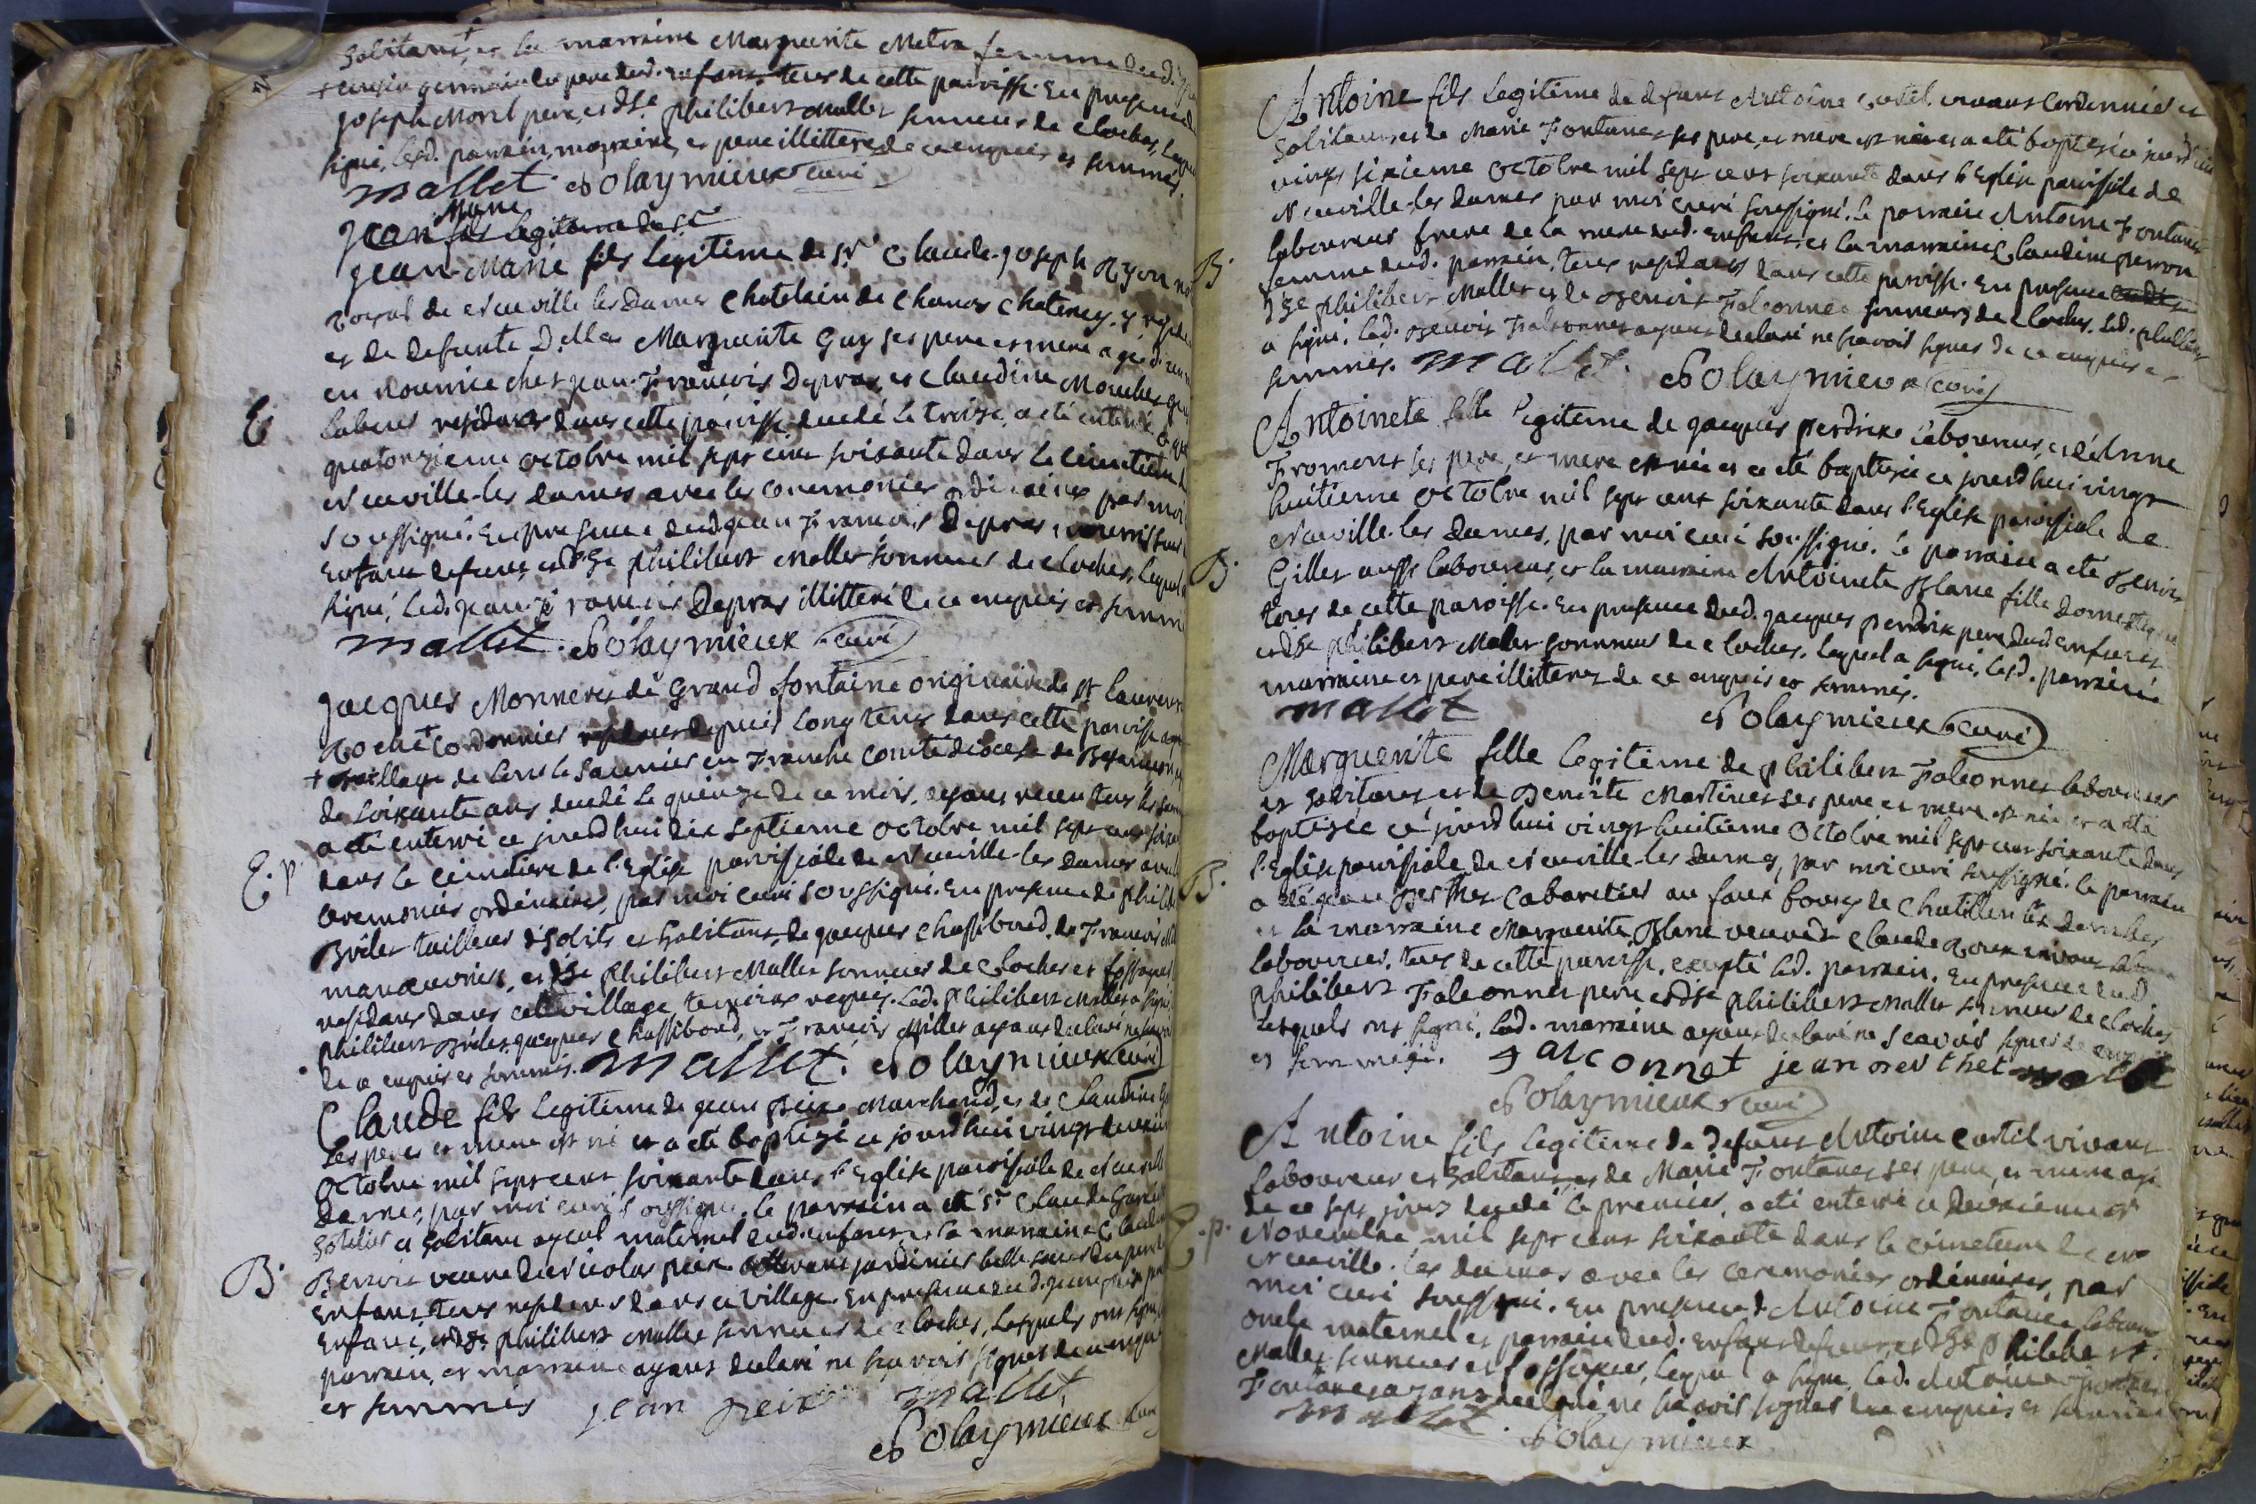 habitant, et la marraine Marguerite Metra femme dud.
+ cousin germain du pere dud. enfant tous de cette paroisse. En presence de
joseph Morel pere, et dse philibert Mallet sonneur de cloches, lequel a
signé, lesd. parrain, marraine, et pere illitterés de ce enquis et sommés.
mallet. Polaymieux curé
Marie
jean fils legitime de Sr
jean-Marie fils legitime de Sr Claude-joseph
royal de Neuville les Dames Chatelain de Chanos Chatenay, y
et de defunte Delle Marguerite Guy ses pere et mere agé d'un
en nourrice chez jean-François Depras, et Claudine
E
labour residants dans cette paroisse, decedé le treize, a eté enterré ce
quatorzieme octobre mil sept cent soixante dans le cimetiere de
Neuville-les Dames avec les ceremonies ordinaires par moi
soussigné. En presence dud. jean François Depras, nourrissier
enfant defunt, et dse philibert Mallet sonneur de cloches, lequel a
signé, led. jean-François Depras illitteré de ce enquis et sommé
mallet. Polaymieux curé
jacques Monneret de Grand fontaine originaire de St Laurent
Roche + Cordonnier residant depuis longtems dans cette paroisse agé
+ baillage de Lons le Saunier en Franche Comté diocese de Besançon
de soixante ans decedé le quinze de ce mois, ayant recu tous les sacr
a eté enterré ce jourd'hui dix septieme octobre mil sept cent soixante
E. p.
dans le cimetiere de l'Eglise paroissiale de Neuville-les Dames avec les
ceremonies ordinaires, par moi curé soussigné. En presence de philibert
Brulet tailleur d'habits et habitant, de jacques Chassibond, de François Millet
manoeuvres, et dse philibert Mallet sonneur de cloches et fossoyeur
residant dans cet village temoins requis. Led. philibert Mallet a signé
philibert Brulet, jacques Chassibond, et François Millet ayant declaré ne savoir
de ce enquis et sommés. mallet. Polaymieux curé
Claude fils legitime de jean peix Marchand, et de Claudine
ses pere et mere est né et a eté baptizé ce jourd'hui vingt deuxieme
octobre mil sept cent soixante dans l'Eglise paroissiale de Neuville
Dames, par moi curé soussigné. le parrain a eté Sr Claude
hotelier et habitant ayeul maternel dud. enfant, et la marraine Claudine
B.
Benoit veuve de Nicolas peix vivant jardinier belle soeur du pere
enfant, tous residents dans ce village. En presence dud. jean peix pere
enfant, et dse philibert Mallet sonneur de cloches, lesquels ont signé,
parrain, et marraine ayant declaré ne sçavoir signer de ce enquis
et sommés jean peix mallet
Polaymieux curé
Antoine fils legitime de defunt Antoine Costil vivant Cordonnier et
habitant, et de Marie Fontanet ses pere, et mere est né et a eté baptizé ce jourd'hui
vingt sixieme octobre mil sept cent soixante dans l'Eglise paroissiale de
Neuville-les Dames par moi curé soussigné. le parrain Antoine Fontanet
laboureur frere de la mere dud. enfant, et la marraine Claudine perron
B.
femme dud. parrain, tous residants dans cette paroisse. En presence
dse philibert Mallet et de Benoit Falconnet sonneurs de cloches, led. philibert
a signé, led. Benoit Falconnet ayant declaré ne sçavoir signer de ce enquis et
sommés. mallet. Polaymieux curé
Antoinete fille legitime de jacques perdrix laboureur, et d'Anne
Fromont ses pere, et mere est née et a eté baptizée ce jourd'hui vingt
huitieme octobre mil sept cent soixante dans l'Eglise paroissiale de
Neuville-les Dames, par moi curé soussigné. le parrain a eté Benoit
B.
Gillet aussi laboureur, et la marraine Antoinete Blanc fille domestique
tous de cette paroisse. En presence dud. jacques perdrix pere dud. enfant
et dse philibert Mallet sonneur de cloches, lequel a signé, lesd. parrain
marraine et pere illitterez de ce enquis et sommés.
mallet Polaymieux curé
Marguerite fille legitime de philibert Falconnet laboureur
et habitant, et de Benoite Martinet ses pere et mere est née et a eté
baptizée ce jourd'hui vingt huitieme octobre mil sept cent soixante dans
l'Eglise paroissiale de Neuville-les Dames, par moi curé soussigné. le parrain
B.
a eté jean Berthet Cabaretier au faux bourg de Chatillon les Dombes
et la marraine Marguerite Blanc veuve de Claude Roux vivant
laboureur, tous de cette paroisse, excepté led. parrain. En presence dud.
philibert Falconnet pere et dse philibert Mallet sonneur de cloches
lesquels ont signé, lad. marraine ayant declaré ne scavoir signer de enquise
et sommée. falconnet jean berthet mallet
Polaymieux curé
Antoine fils legitime de defunt Antoine Costil vivant
laboureur et habitant, et de Marie Fontanet ses pere, et mere agé
de ce sept jours decedé le premier, a eté enterré ce deuxieme
E. p.
Novembre mil sept cent soixante dans le cimetiere de
Neuville-les Dames avec les ceremonies ordinaires, par
moi curé soussigné. En presence d'Antoine Fontanet laboureur
oncle maternel et parrain dud. enfant defunt, et dse philibert
Mallet sonneur et fossoyeur, lequel a signé, led. Antoine
Fontanet ayant declaré ne sçavoir signer de ce enquis et sommé
mallet. Polaymieux